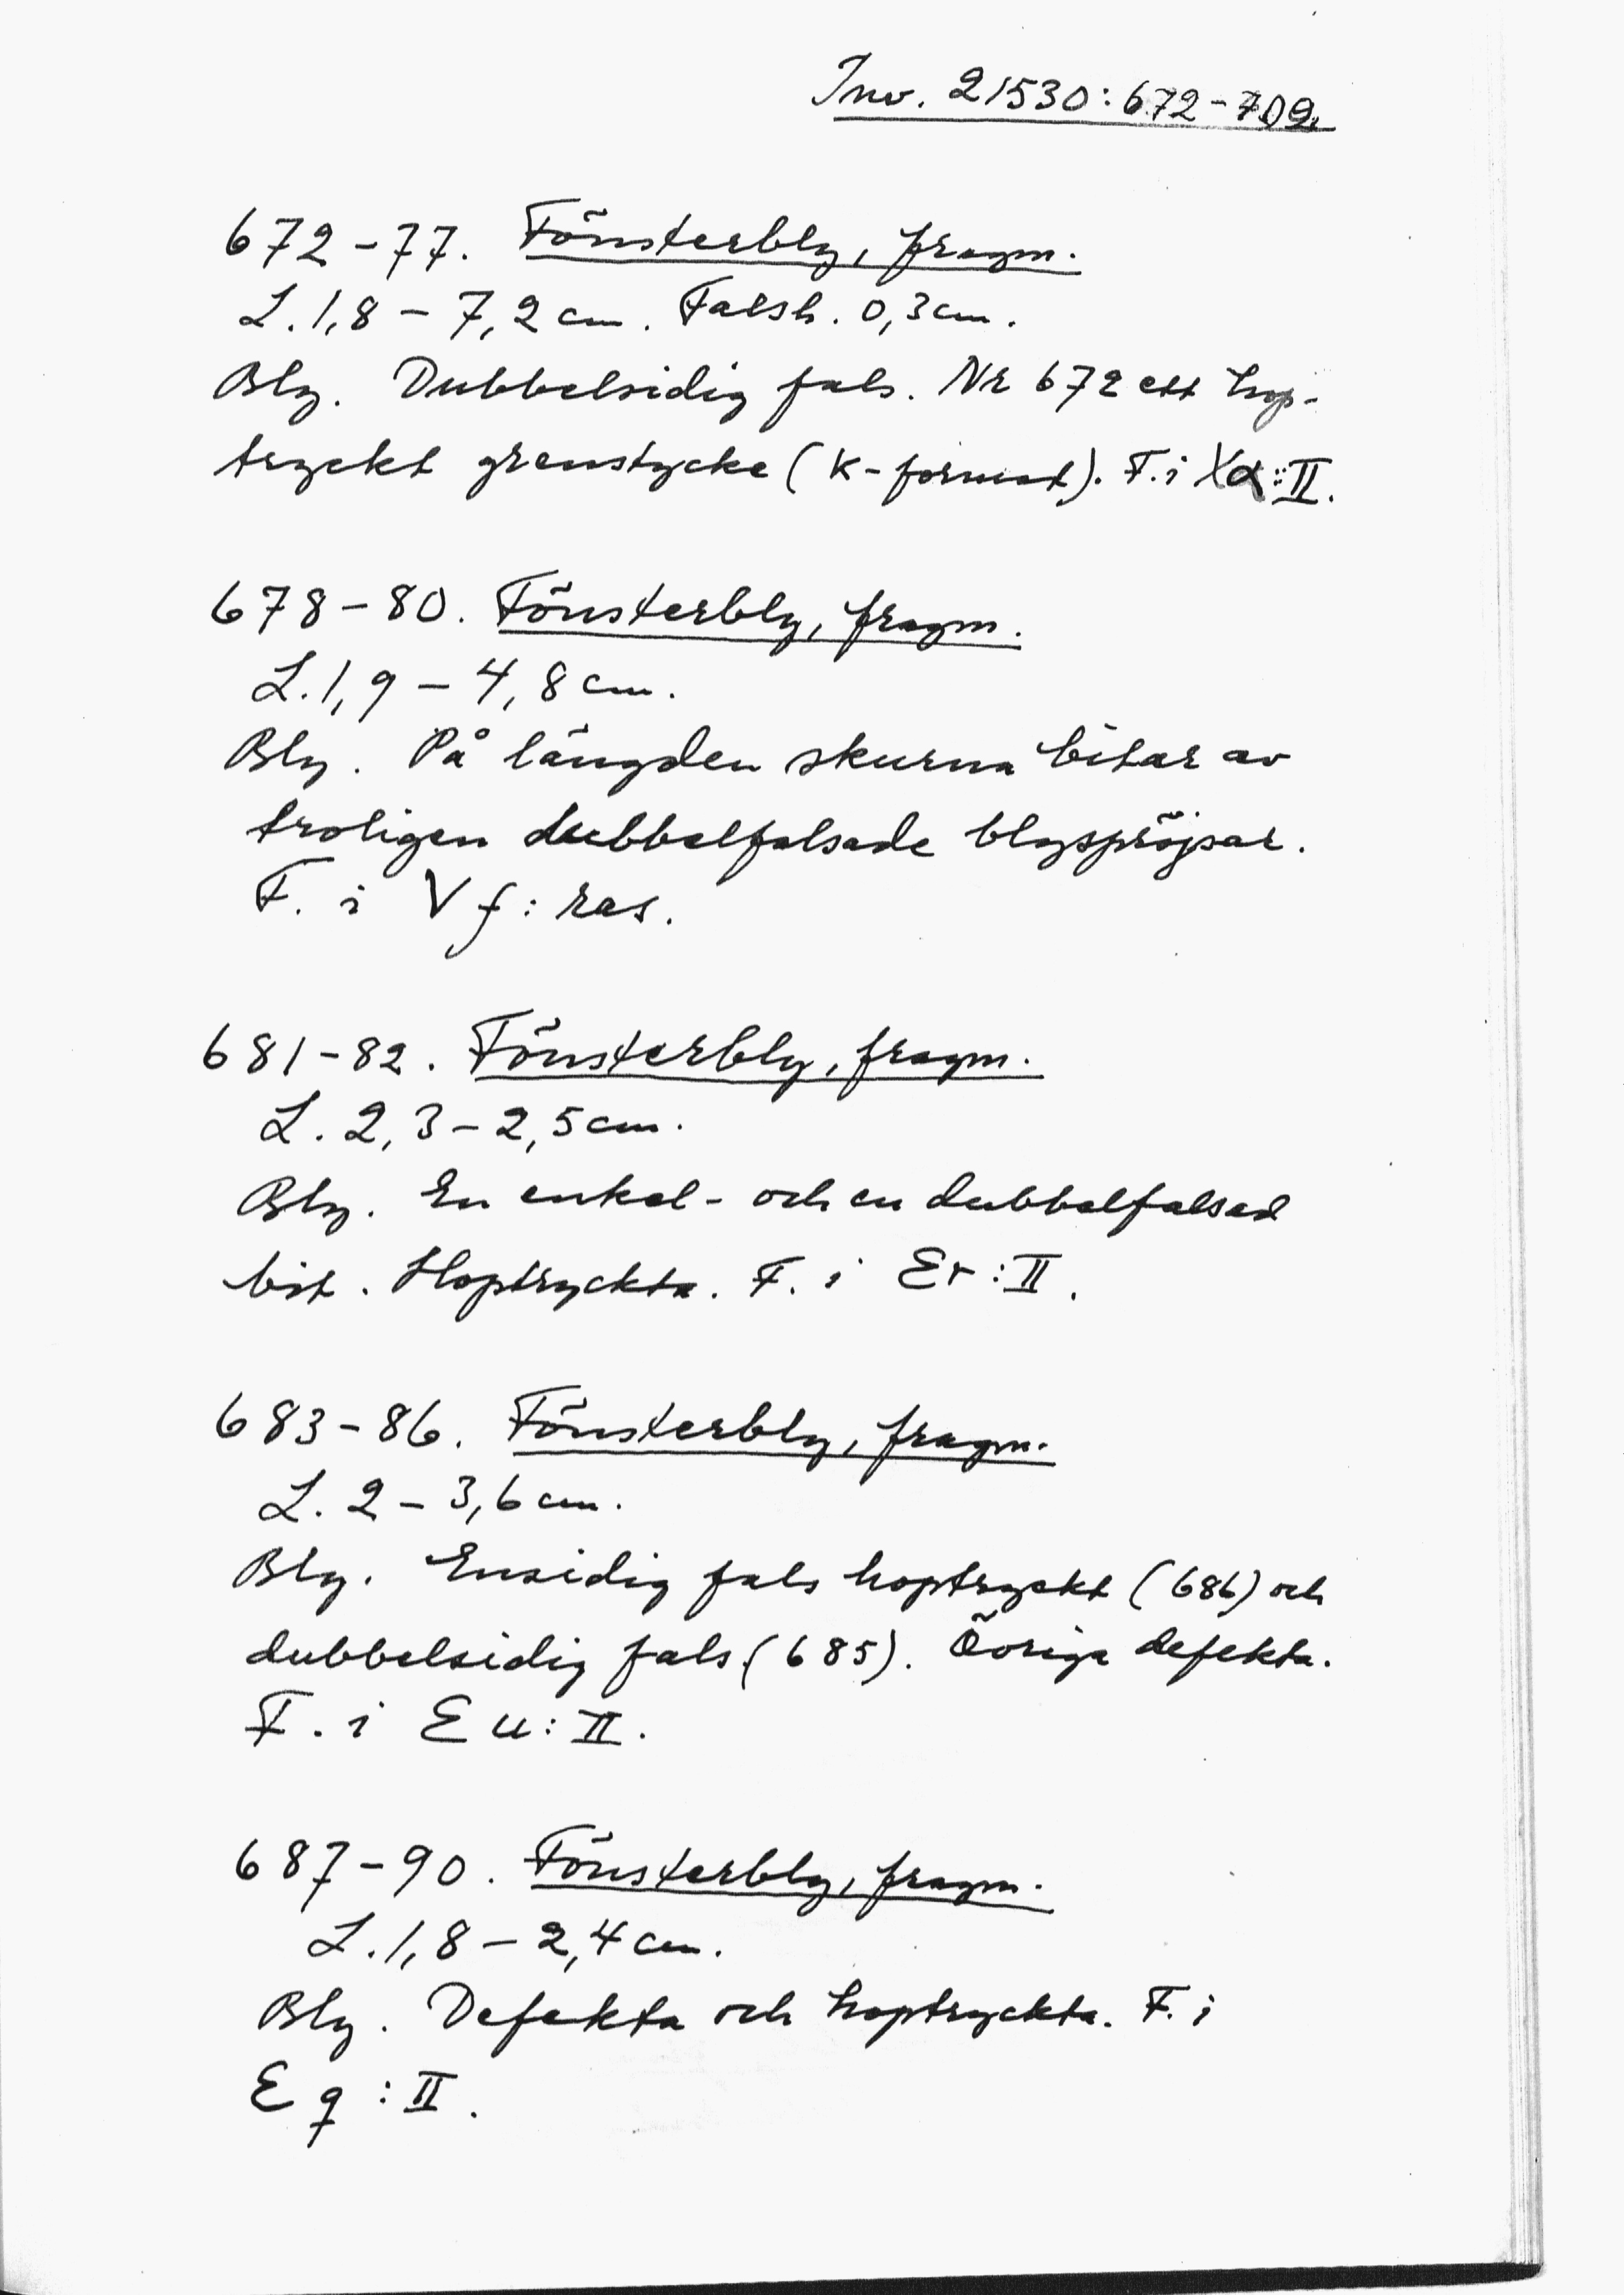 Inv. 21530:672-709.
672-77. Fönsterbly, fragm.
L. 1,8 - 7,2 cm. Falsh. 0,3 cm.
Bly. Dubbelsidig fals. Nr 672 ett hop-
tryckt grenstycke (K-format). F. i Xα:II.
678-80. Fönsterbly, fragm.
L. 1,9 - 4,8 cm.
Bly. På längden skurna bitar av
troligen dubbelfalsade blyspröjsar.
F. i V f: ras.
681-82. Fönsterbly, fragm.
L. 2,3 - 2,5 cm.
Bly. En enkel- och en dubbelfalsad
bit. Hoptryckta. F. i Er:II.
683-86. Fönsterbly, fragm.
L. 2 - 3,6 cm.
Bly. Ensidig fals hoptryckt (686) och
dubbelsidig fals (685). Övriga defekta.
F. i E u:II.
687-90. Fönsterbly, fragm.
L. 1,8 - 2,4 cm.
Bly. Defekta och hoptryckta. F. i
E q :II.